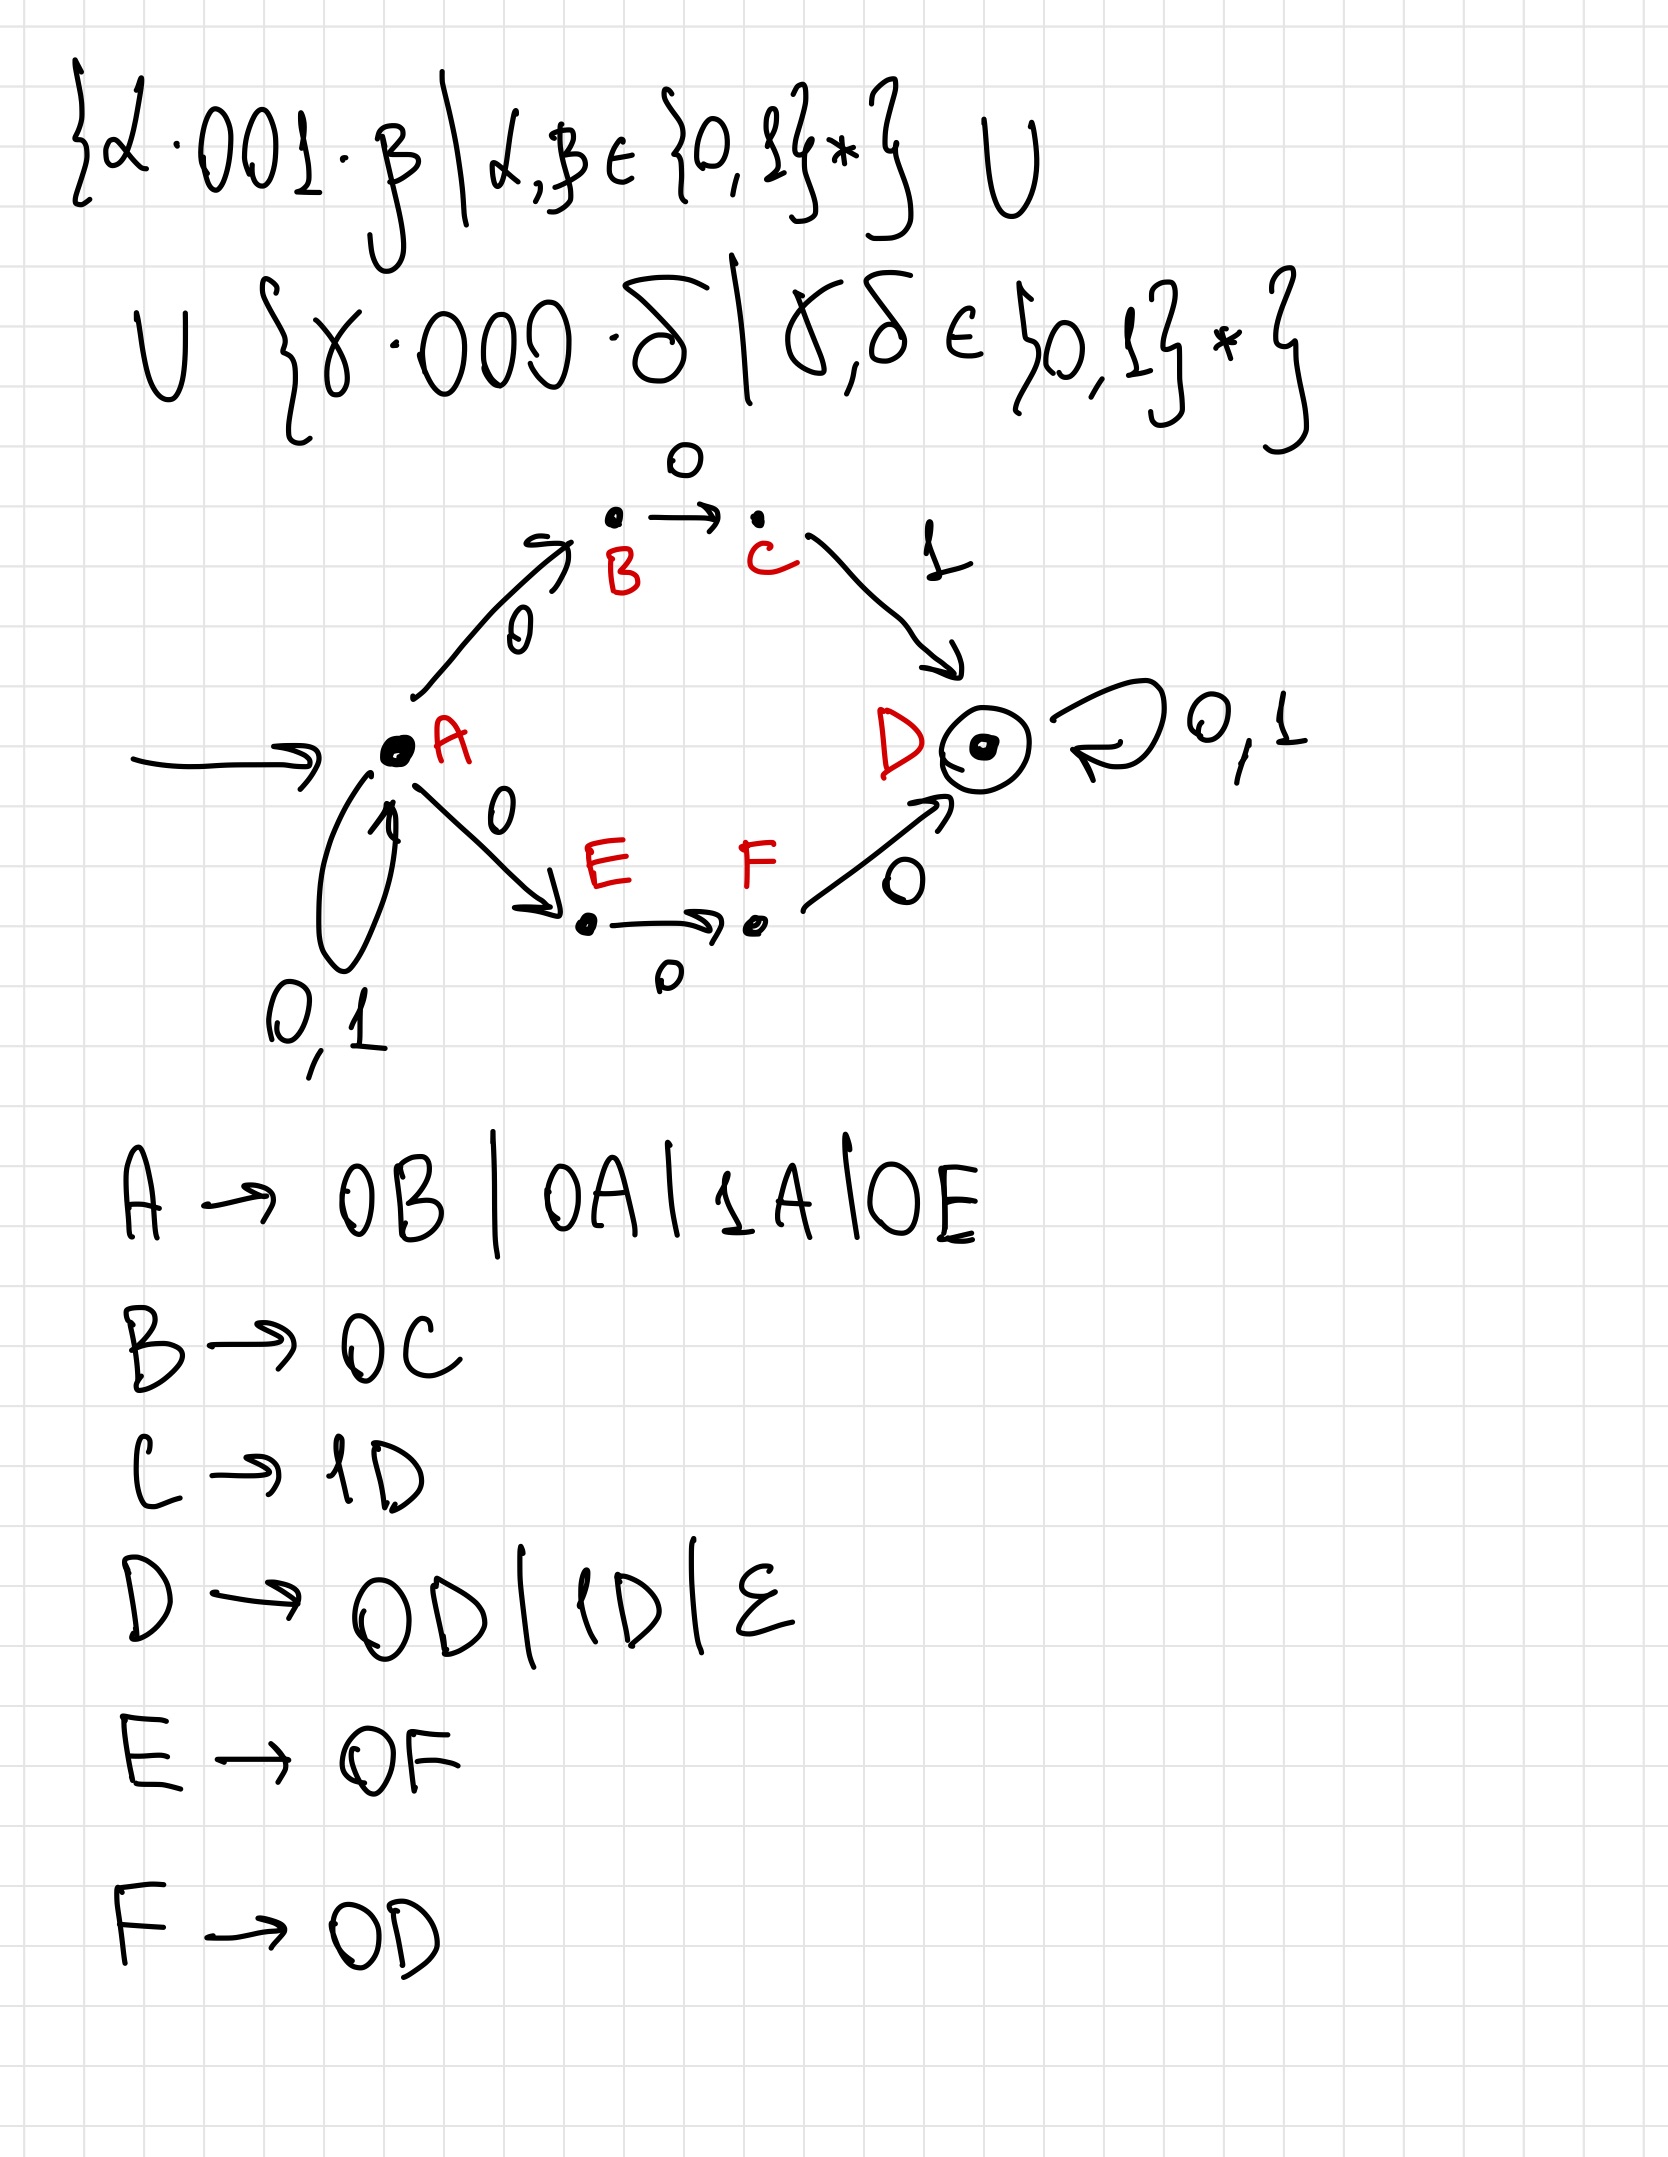 {α·001·β | α,β ∈ {0,1}*} ∪
∪ {γ·000·δ | γ,δ ∈ {0,1}*}
0
B C 1
0
A D 0,1
0
E F
0
0
0,1
A → 0B | 0A | 1A | 0E
B → 0C
C → 1D
D → 0D | 1D | ε
E → 0F
F → 0D